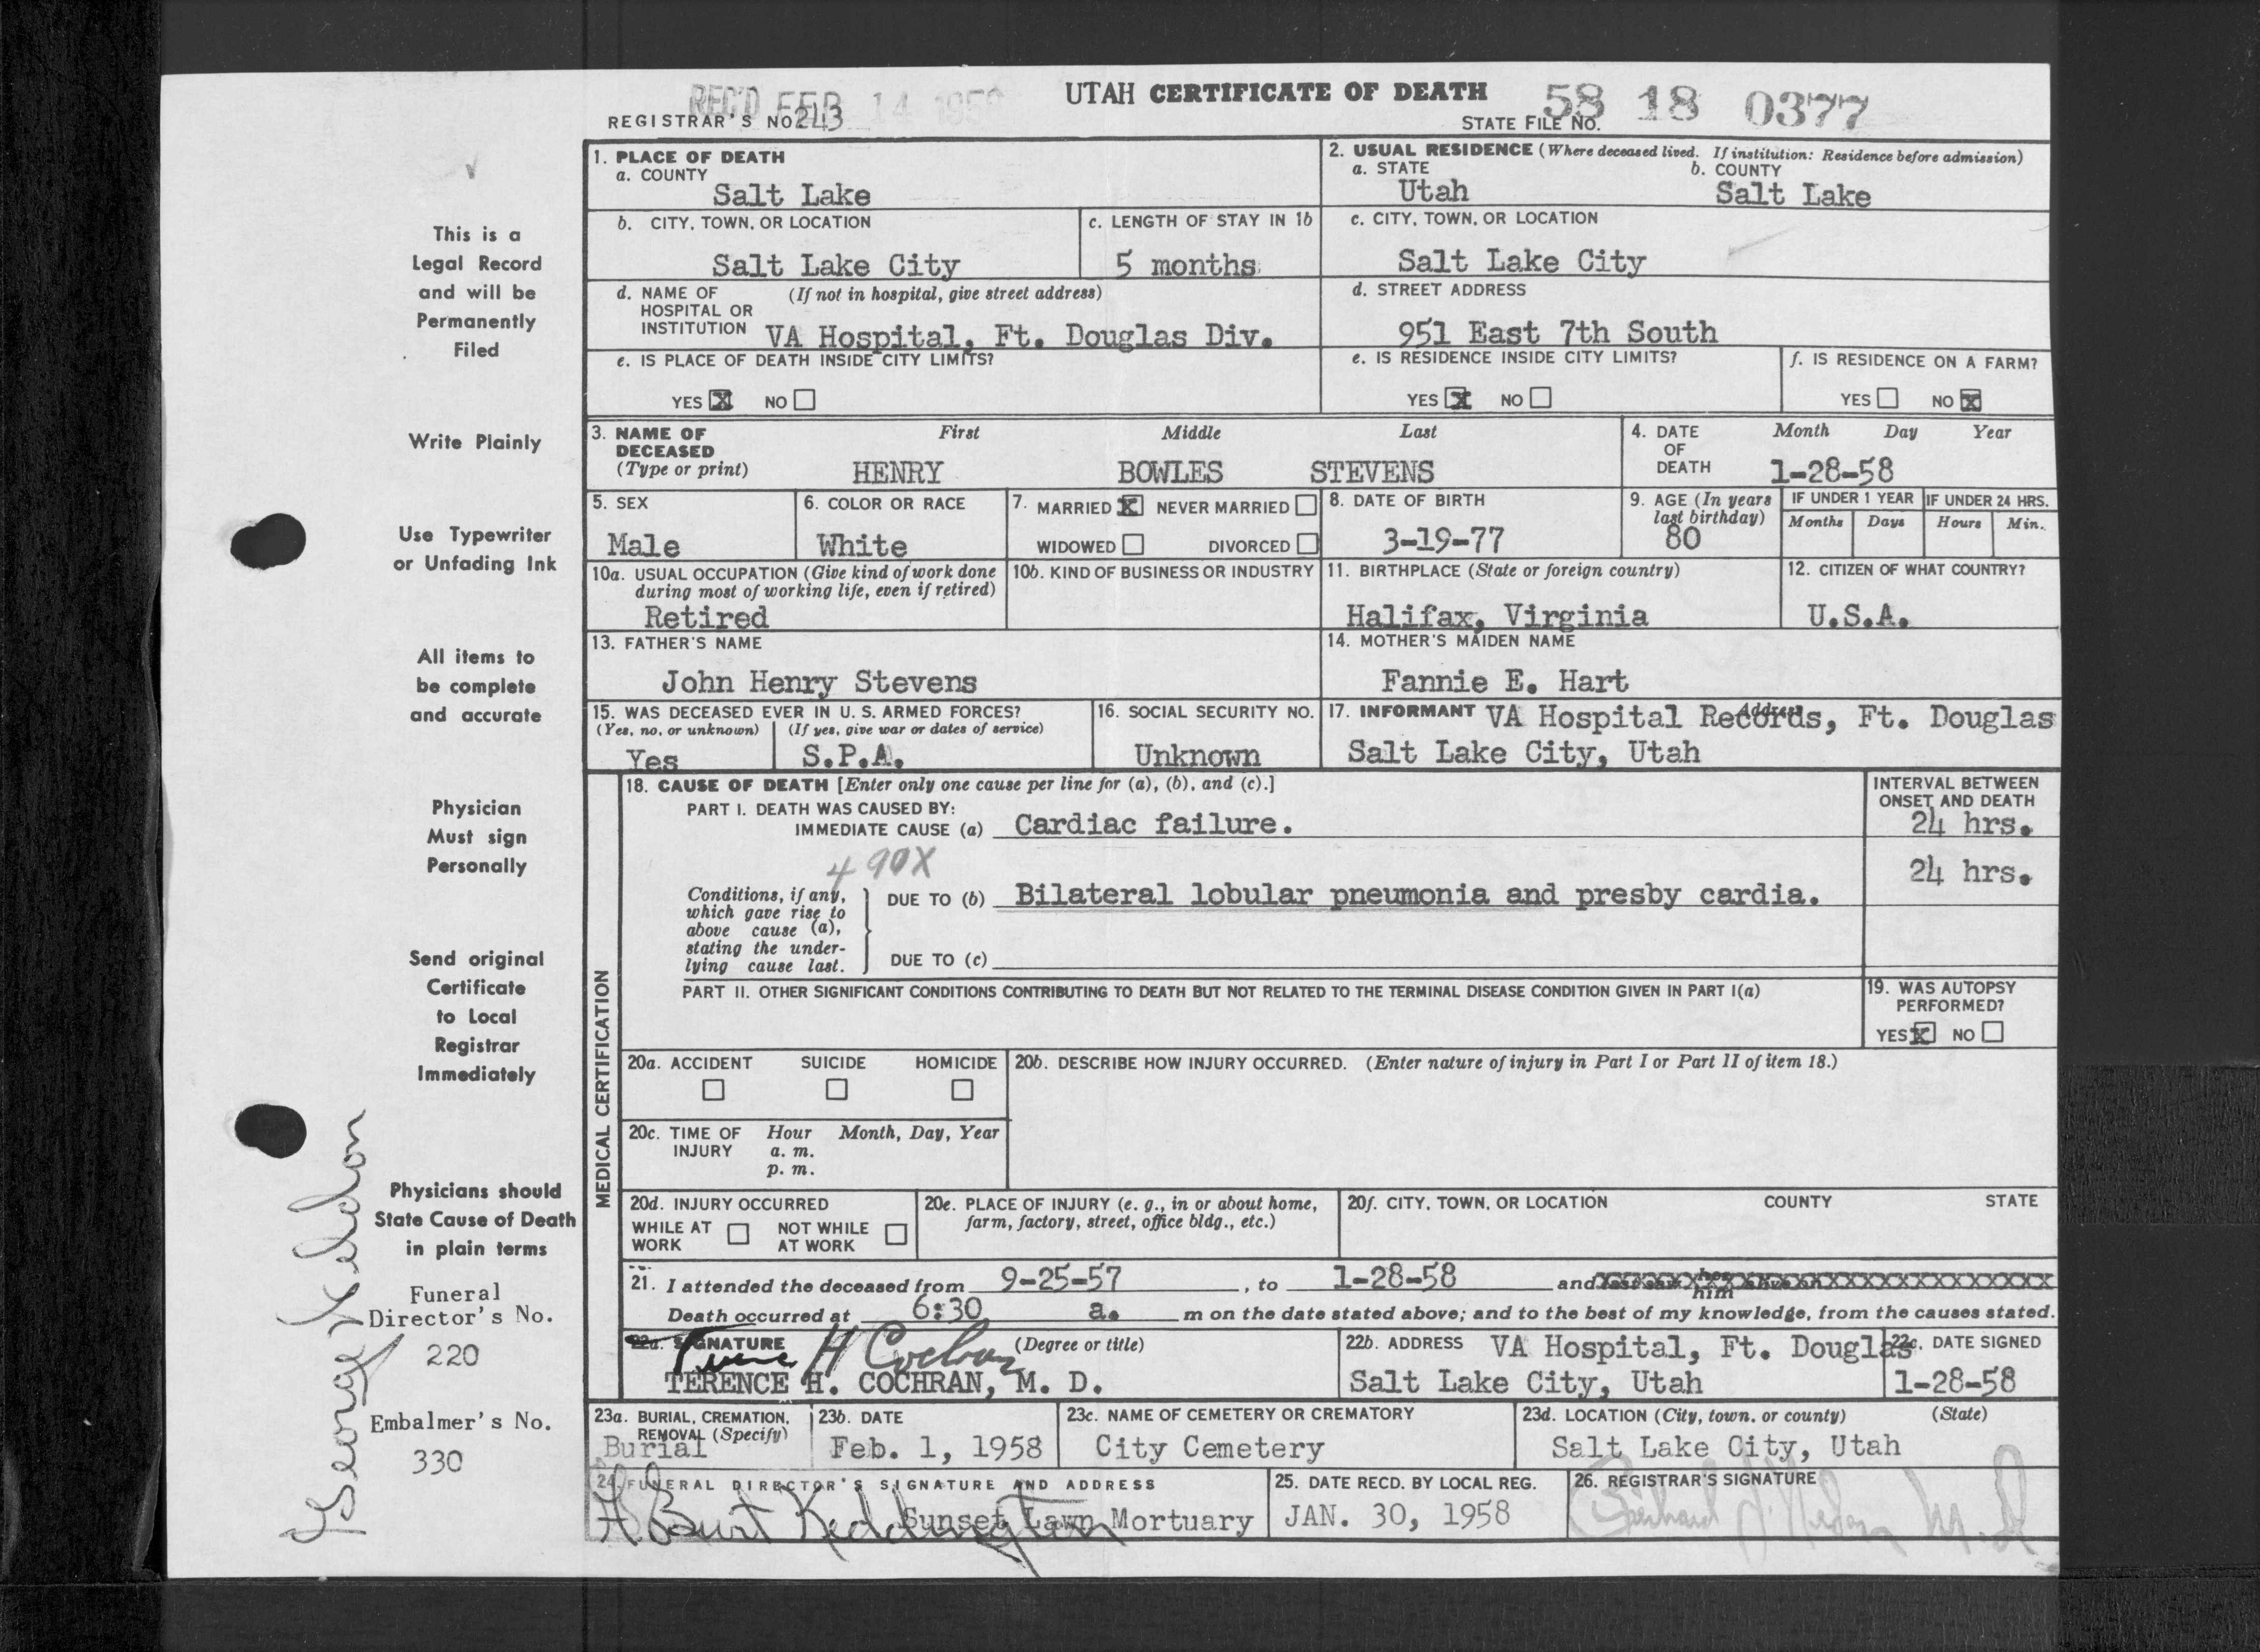 REC'D FEB 14 195
UTAH CERTIFICATE OF DEATH
58 18 0377
REGISTRAR'S NO 243
STATE FILE NO.
1. PLACE OF DEATH
a. COUNTY
Salt Lake
2. USUAL RESIDENCE (Where deceased lived. If institution: Residence before admission)
a. STATE b. COUNTY
Utah Salt Lake
b. CITY, TOWN, OR LOCATION
Salt Lake City
c. LENGTH OF STAY IN 1b
5 months
c. CITY, TOWN, OR LOCATION
Salt Lake City
d. NAME OF (If not in hospital, give street address)
HOSPITAL OR
INSTITUTION VA Hospital, Ft. Douglas Div.
d. STREET ADDRESS
951 East 7th South
e. IS PLACE OF DEATH INSIDE CITY LIMITS?
YES X NO
e. IS RESIDENCE INSIDE CITY LIMITS?
YES X NO
f. IS RESIDENCE ON A FARM?
YES NO X
3. NAME OF First Middle Last
DECEASED
(Type or print) HENRY BOWLES STEVENS
4. DATE Month Day Year
OF
DEATH 1-28-58
5. SEX
Male
6. COLOR OR RACE
White
7. MARRIED X NEVER MARRIED
WIDOWED DIVORCED
8. DATE OF BIRTH
3-19-77
9. AGE (In years
last birthday)
80
IF UNDER 1 YEAR IF UNDER 24 HRS.
Months Days Hours Min.
10a. USUAL OCCUPATION (Give kind of work done
during most of working life, even if retired)
Retired
10b. KIND OF BUSINESS OR INDUSTRY
11. BIRTHPLACE (State or foreign country)
Halifax, Virginia
12. CITIZEN OF WHAT COUNTRY?
U.S.A.
13. FATHER'S NAME
John Henry Stevens
14. MOTHER'S MAIDEN NAME
Fannie E. Hart
15. WAS DECEASED EVER IN U. S. ARMED FORCES?
(Yes, no, or unknown) (If yes, give war or dates of service)
Yes S.P.A.
16. SOCIAL SECURITY NO.
Unknown
17. INFORMANT Address
VA Hospital Records, Ft. Douglas
Salt Lake City, Utah
MEDICAL CERTIFICATION
18. CAUSE OF DEATH [Enter only one cause per line for (a), (b), and (c).]
PART I. DEATH WAS CAUSED BY:
IMMEDIATE CAUSE (a) Cardiac failure.
INTERVAL BETWEEN
ONSET AND DEATH
24 hrs.
490X
Conditions, if any,
which gave rise to
above cause (a),
stating the under-
lying cause last.
DUE TO (b) Bilateral lobular pneumonia and presby cardia.
24 hrs.
DUE TO (c)
PART II. OTHER SIGNIFICANT CONDITIONS CONTRIBUTING TO DEATH BUT NOT RELATED TO THE TERMINAL DISEASE CONDITION GIVEN IN PART I(a)
19. WAS AUTOPSY
PERFORMED?
YES X NO
20a. ACCIDENT SUICIDE HOMICIDE
20b. DESCRIBE HOW INJURY OCCURRED. (Enter nature of injury in Part I or Part II of item 18.)
20c. TIME OF Hour Month, Day, Year
INJURY a. m.
p. m.
20d. INJURY OCCURRED
WHILE AT NOT WHILE
WORK AT WORK
20e. PLACE OF INJURY (e. g., in or about home,
farm, factory, street, office bldg., etc.)
20f. CITY, TOWN, OR LOCATION COUNTY STATE
21. I attended the deceased from 9-25-57, to 1-28-58 and last saw her him alive on
Death occurred at 6:30 a. m on the date stated above; and to the best of my knowledge, from the causes stated.
22a. SIGNATURE (Degree or title)
H Cochran
TERENCE H. COCHRAN, M. D.
22b. ADDRESS VA Hospital, Ft. Douglas
Salt Lake City, Utah
22c. DATE SIGNED
1-28-58
23a. BURIAL, CREMATION,
REMOVAL (Specify)
Burial
23b. DATE
Feb. 1, 1958
23c. NAME OF CEMETERY OR CREMATORY
City Cemetery
23d. LOCATION (City, town, or county) (State)
Salt Lake City, Utah
24. FUNERAL DIRECTOR'S SIGNATURE AND ADDRESS
Burt Keddington
Sunset Lawn Mortuary
25. DATE RECD. BY LOCAL REG.
JAN. 30, 1958
26. REGISTRAR'S SIGNATURE
This is a
Legal Record
and will be
Permanently
Filed
Write Plainly
Use Typewriter
or Unfading Ink
All items to
be complete
and accurate
Physician
Must sign
Personally
Send original
Certificate
to Local
Registrar
Immediately
Physicians should
State Cause of Death
in plain terms
Funeral
Director's No.
220
Embalmer's No.
330
George